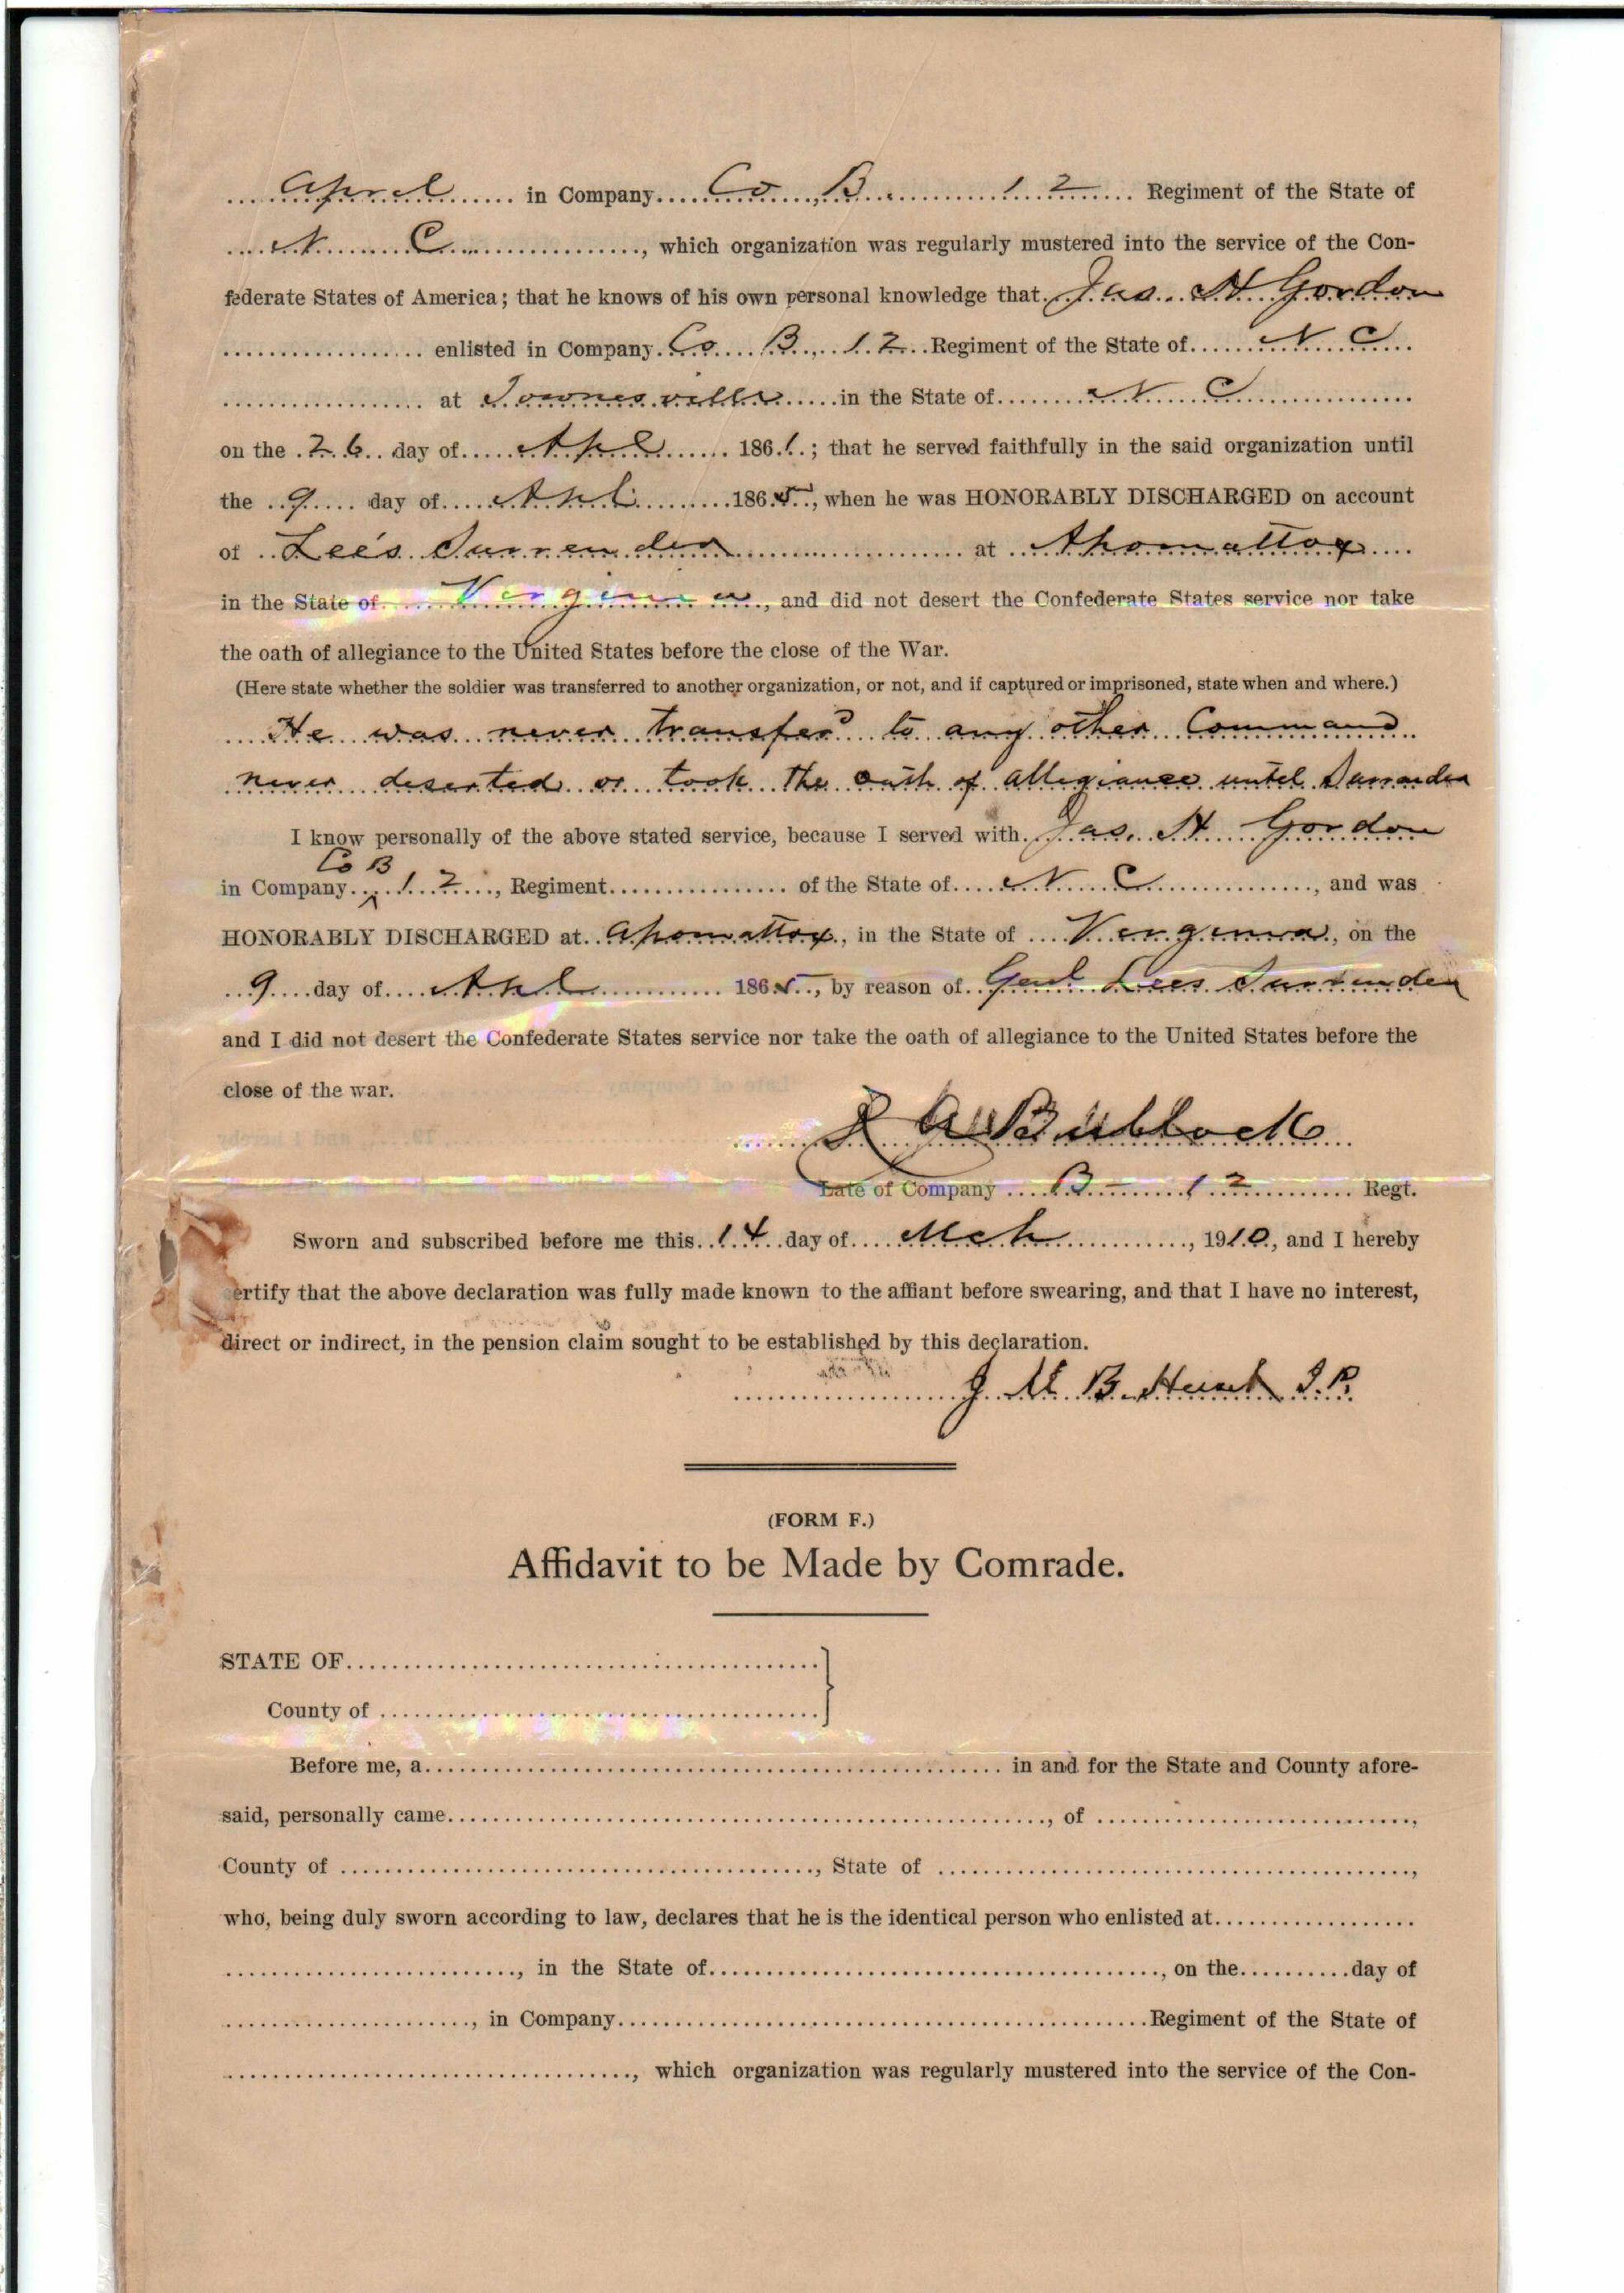 April in Company Co B 12 Regiment of the State of
N C, which organization was regularly mustered into the service of the Con-
federate States of America; that he knows of his own personal knowledge that Jas. H Gordon
enlisted in Company Co B, 12 Regiment of the State of N C
at Townesville in the State of N C
on the 26 day of Apl 1861; that he served faithfully in the said organization until
the 9 day of Apl 1865, when he was HONORABLY DISCHARGED on account
of Lee's Surrender at Apomattox
in the State of Virginia, and did not desert the Confederate States service nor take
the oath of allegiance to the United States before the close of the War.
(Here state whether the soldier was transferred to another organization, or not, and if captured or imprisoned, state when and where.)
He was never transferd to any other Command
never deserted or took the oath of allegiance until Surrender
I know personally of the above stated service, because I served with Jas. H Gordon
Co B
in Company 12, Regiment of the State of N C, and was
HONORABLY DISCHARGED at Apomattox, in the State of Virginia, on the
9 day of Apl 1865, by reason of Genl Lees Surrender
and I did not desert the Confederate States service nor take the oath of allegiance to the United States before the
close of the war.
Bullock
Late of Company B 12 Regt.
Sworn and subscribed before me this 14 day of Mch, 1910, and I hereby
ertify that the above declaration was fully made known to the affiant before swearing, and that I have no interest,
direct or indirect, in the pension claim sought to be established by this declaration.
J. M. B. Hunt J. P.
(FORM F.)
Affidavit to be Made by Comrade.
STATE OF
County of
Before me, a in and for the State and County afore-
said, personally came, of,
County of, State of,
who, being duly sworn according to law, declares that he is the identical person who enlisted at
, in the State of, on the day of
, in Company Regiment of the State of
, which organization was regularly mustered into the service of the Con-